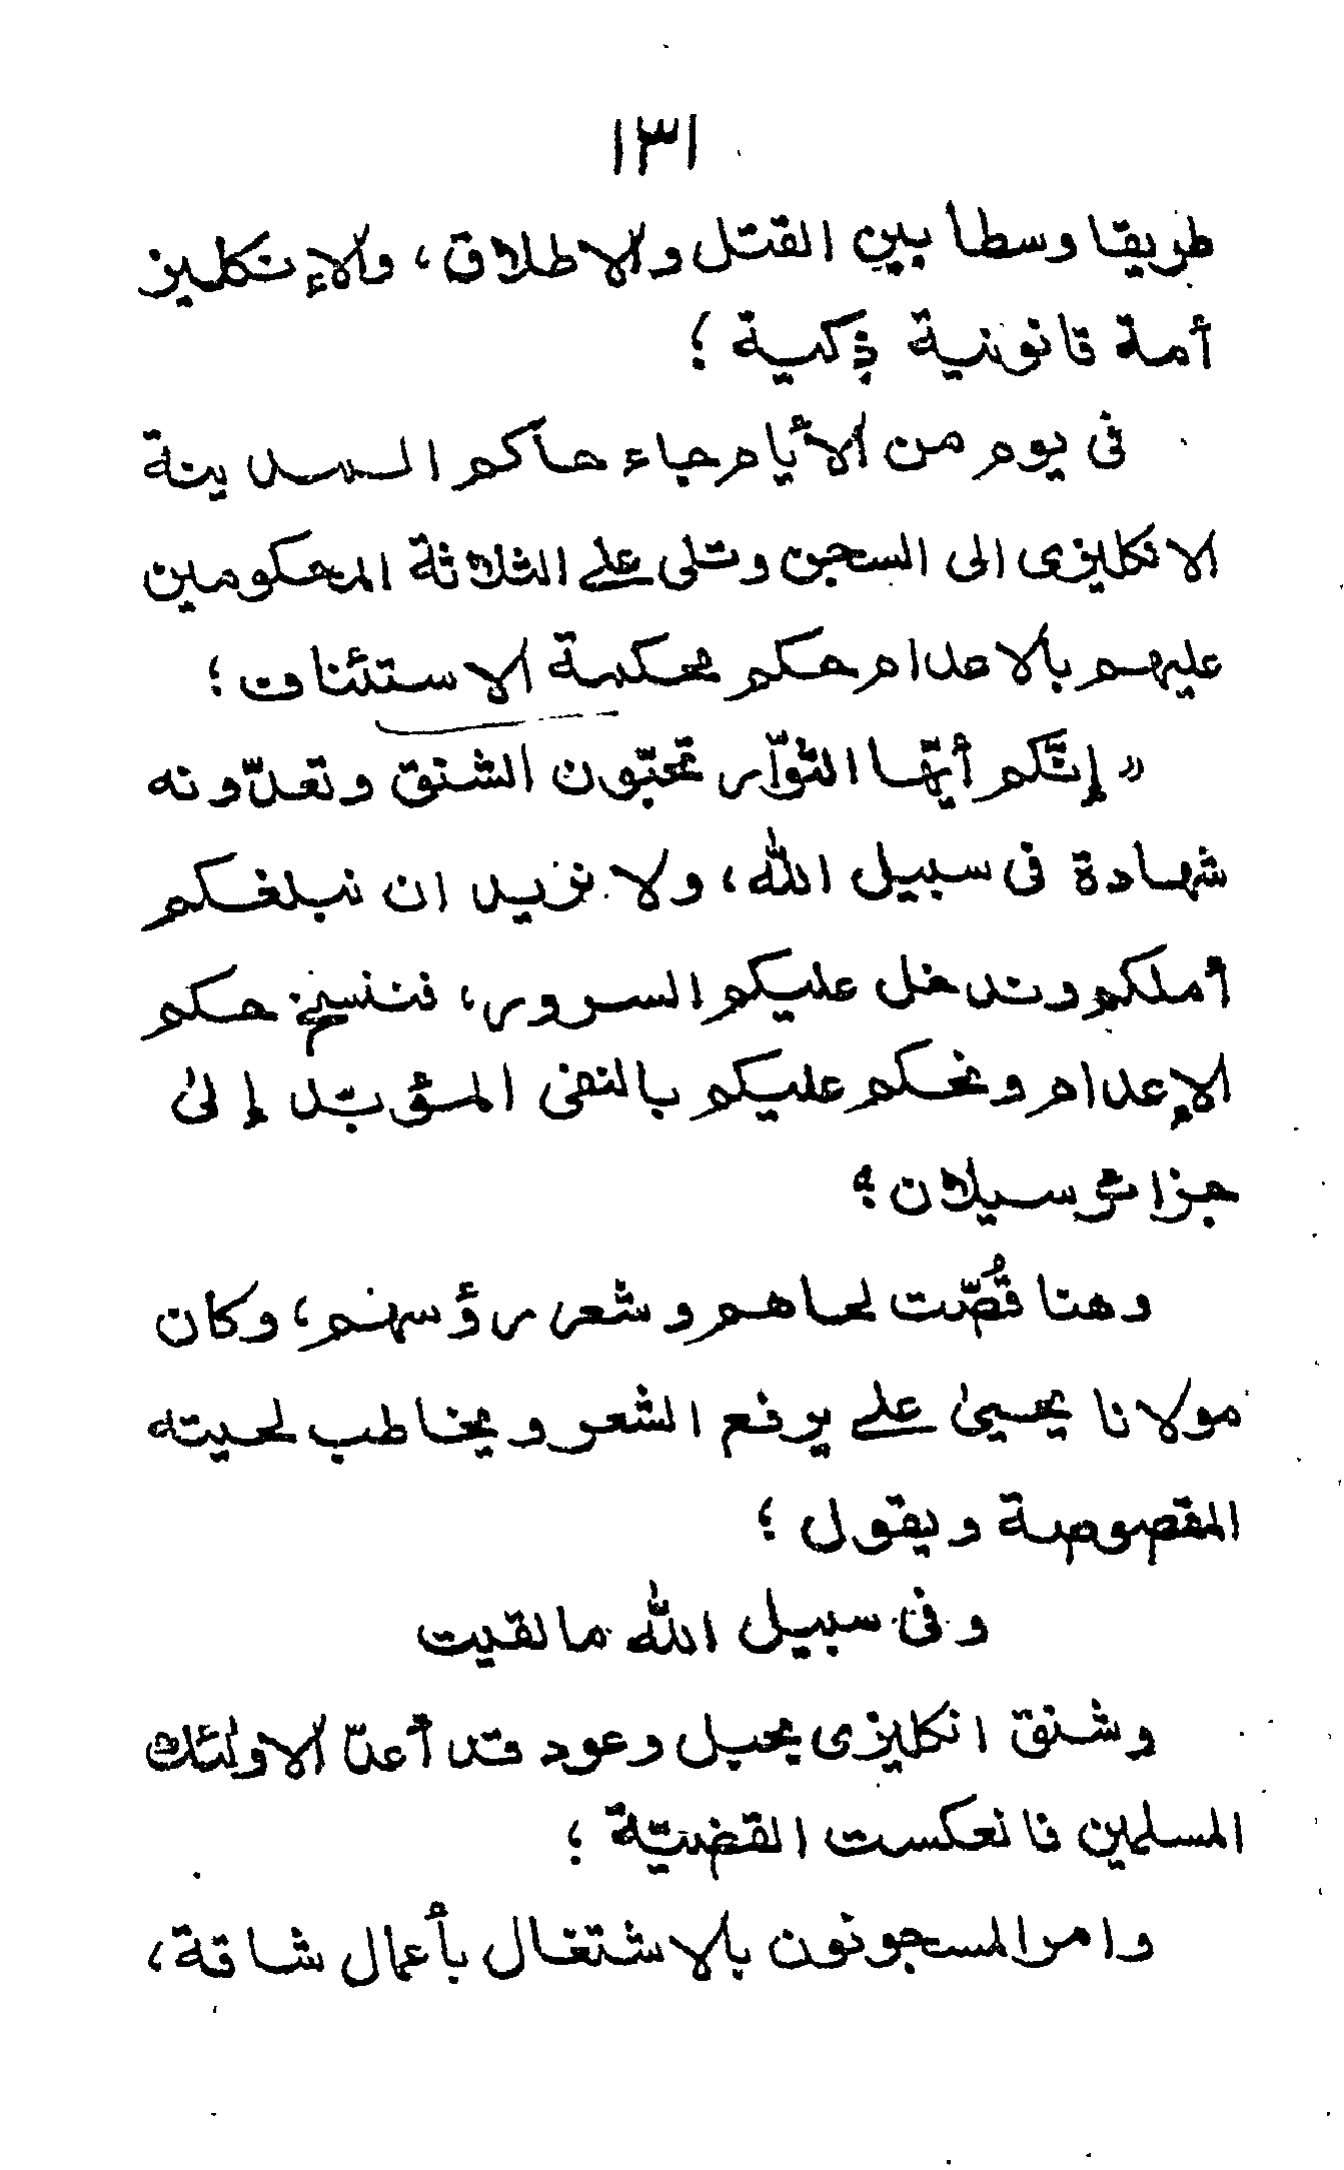 ١٣١
طريقا وسطا بين القتل والاطلاق، والإنكليز
أمة قانونية ذكية ؛
فى يوم من الأيام جاء حاكم المدينة
الانكليزى الى السجن وتلى على الثلاثة المحكومين
عليهم بالاعدام حكم محكمة الاستئناف ؛
« إنّكم أيّها الثوّار تحبّون الشنق وتعدّونه
شهادة فى سبيل الله، ولا نزيد ان نبلغكم
أملكم وندخل عليكم السرور، فننسخ حكم
الإعدام ونحكم عليكم بالنفى المؤبّد إلى
جزائر سيلان ؛
وهنا قُصّت لحاهم وشعر رؤسهم، وكان
مولانا يحيى على يرفع الشعر ويخاطب لحيته
المقصوصة ويقول ؛
وفى سبيل الله مالقيت
وشنق انكليزى بحبل وعود قد أعدّ لاولئك
المسلمين فانعكست القضيّة ؛
وامر المسجونون بالاشتغال بأعمال شاقة،